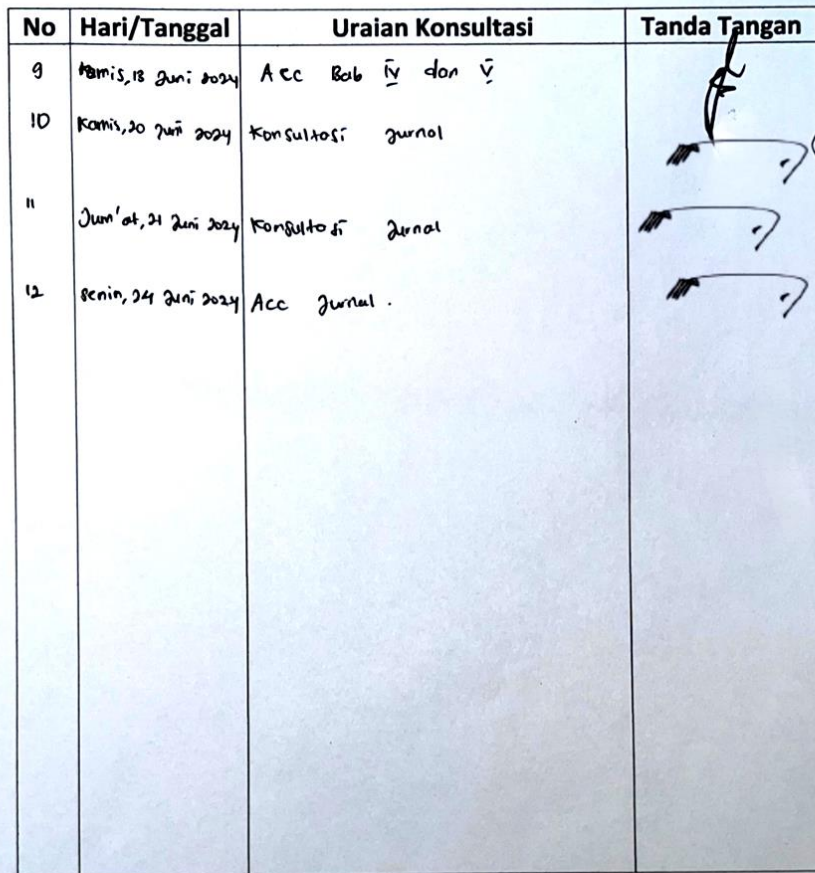 No Hari/Tanggal Uraian Konsultasi Tanda Tangan
9 Kamis, 13 Juni 2024 Acc Bab IV dan V
10 Kamis, 20 Juni 2024 Konsultasi Jurnal
11 Jum'at, 21 Juni 2024 Konsultasi Jurnal
12 Senin, 24 Juni 2024 Acc Jurnal.